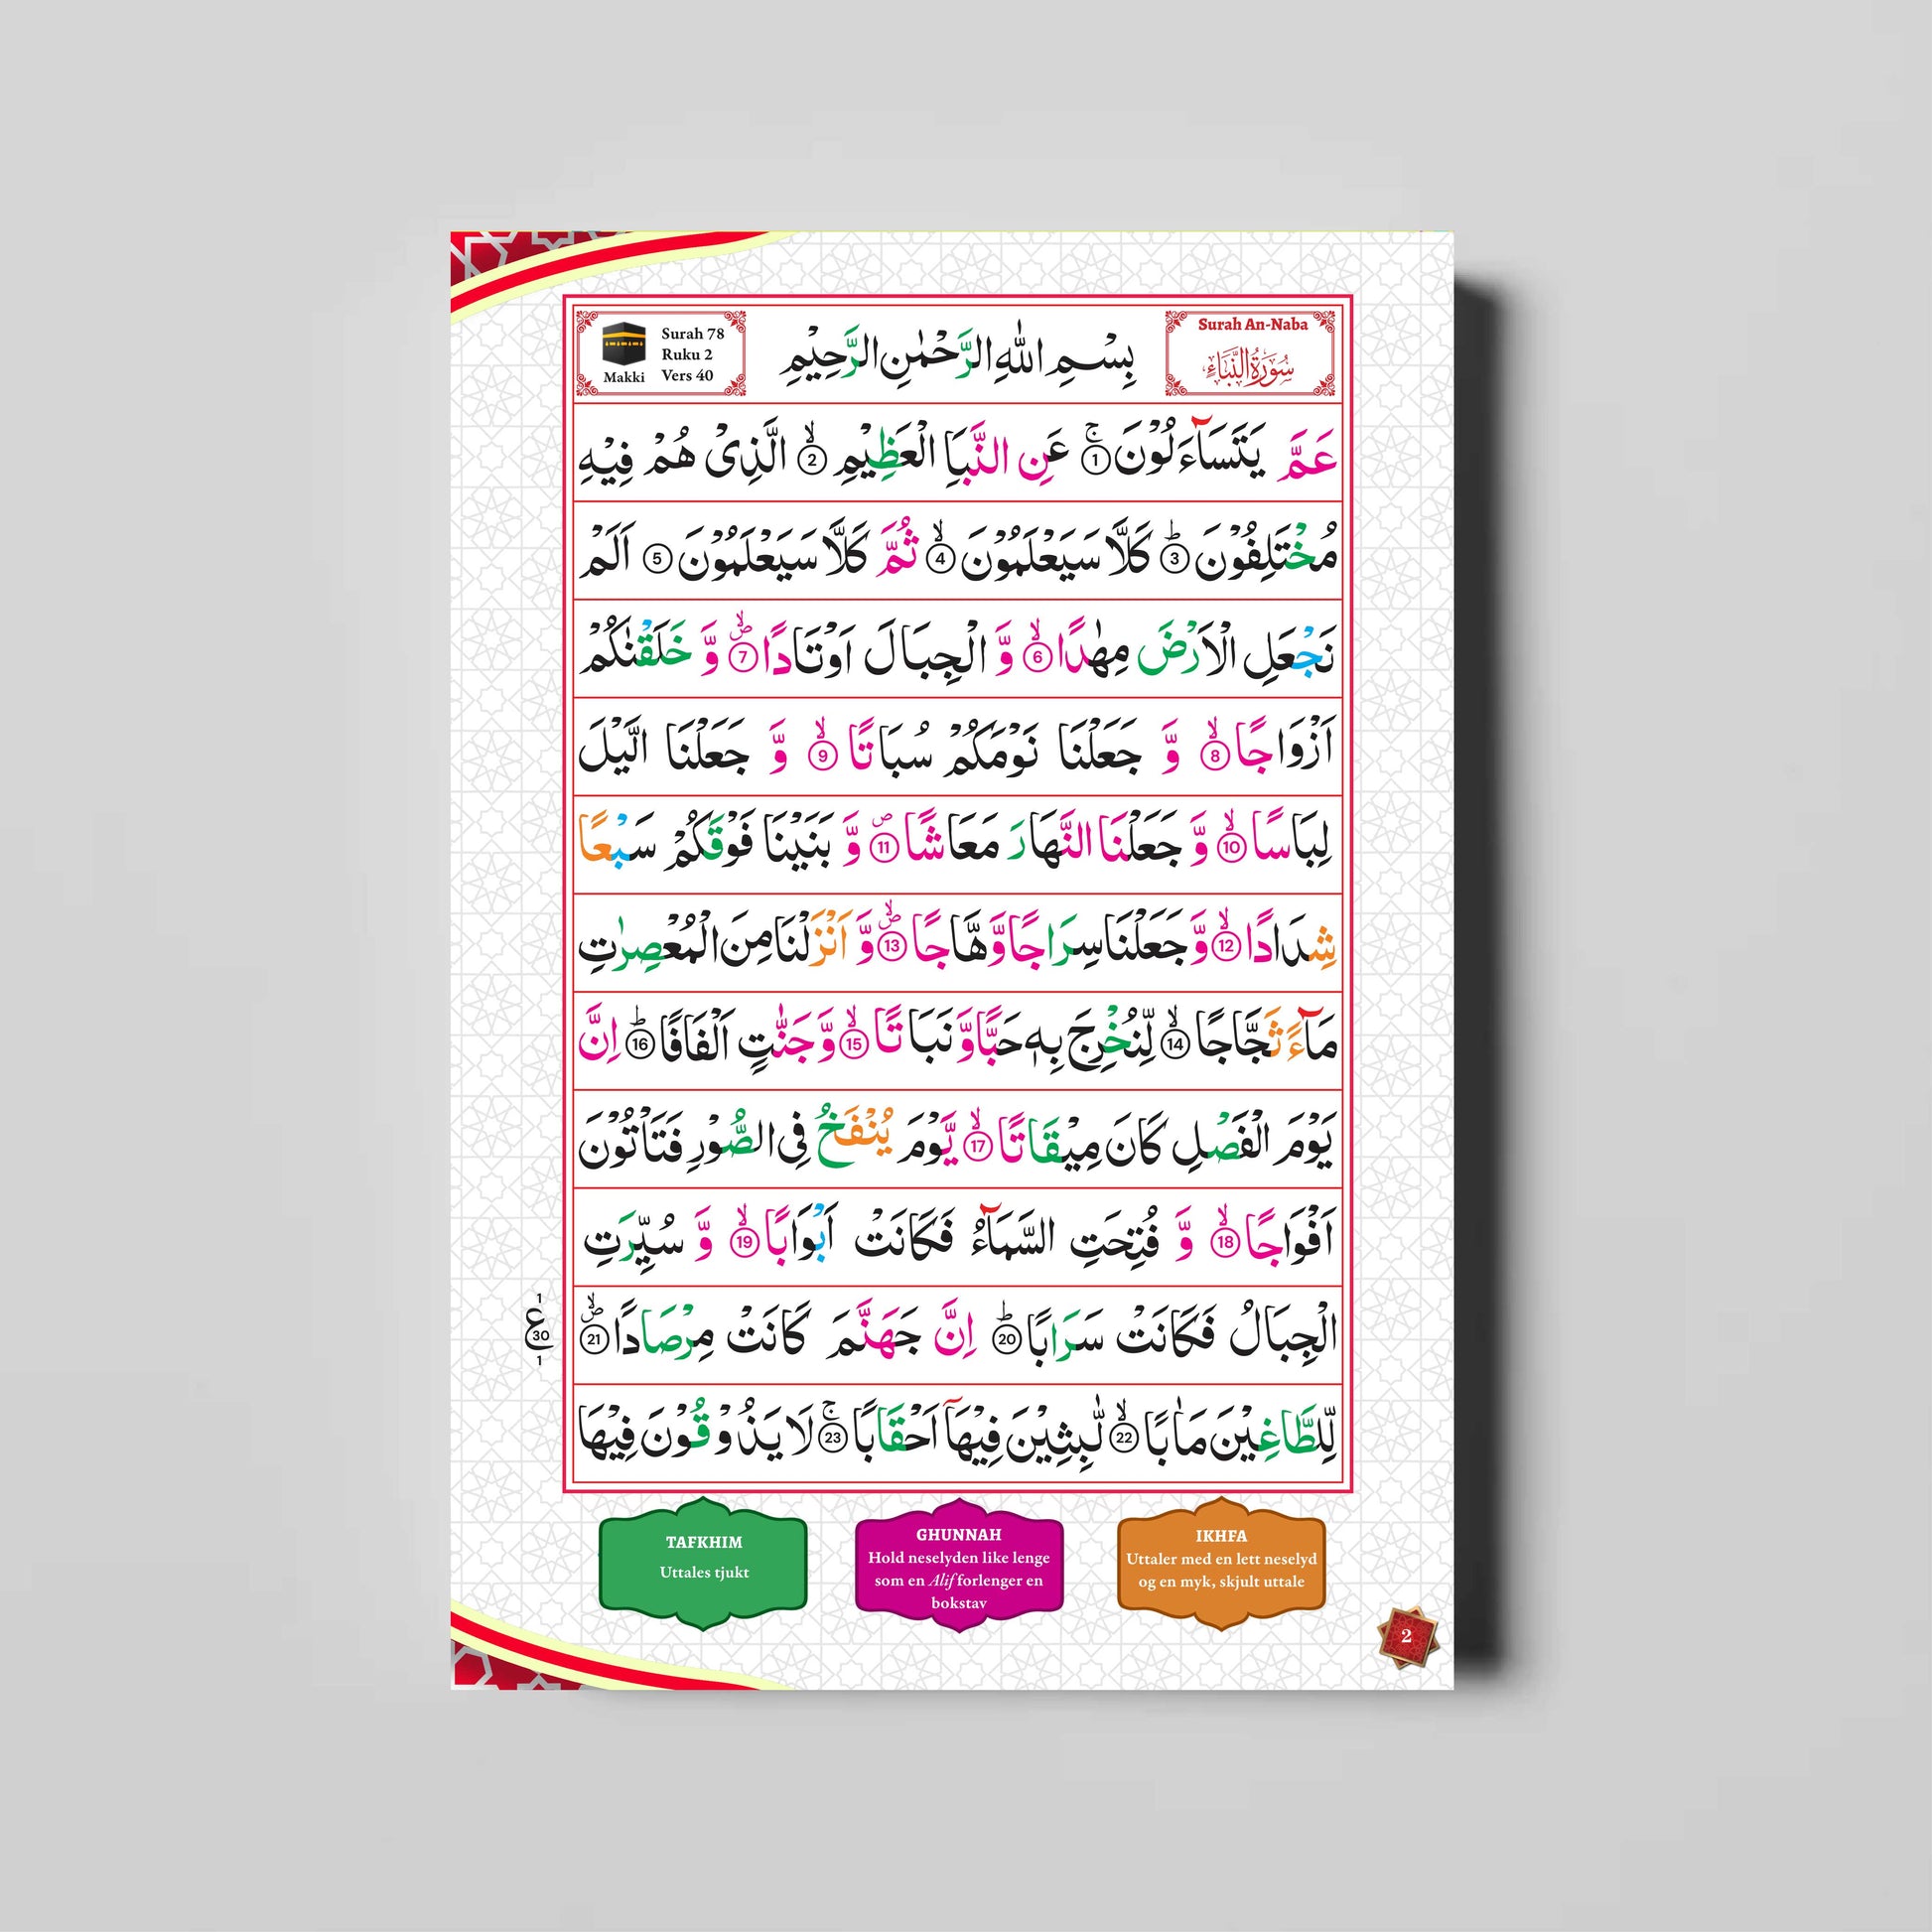 Surah 78
Ruku 2
Vers 40
Makki
بِسْمِ اللهِ الرَّحْمٰنِ الرَّحِيْمِ
Surah An-Naba
سُوْرَةُ النَّبَاءِ
عَمَّ يَتَسَآءَلُوْنَ ۚ 1 عَنِ النَّبَاِ الْعَظِيْمِ ۙ 2 الَّذِىْ هُمْ فِيْهِ
مُخْتَلِفُوْنَ ؕ 3 كَلَّا سَيَعْلَمُوْنَ ۙ 4 ثُمَّ كَلَّا سَيَعْلَمُوْنَ 5 اَلَمْ
نَجْعَلِ الْاَرْضَ مِهٰدًا ۙ 6 وَّ الْجِبَالَ اَوْتَادًا ۙ ص 7 وَّ خَلَقْنٰكُمْ
اَزْوَاجًا ۙ 8 وَّ جَعَلْنَا نَوْمَكُمْ سُبَاتًا ۙ 9 وَّ جَعَلْنَا الَّيْلَ
لِبَاسًا ۙ 10 وَّ جَعَلْنَا النَّهَارَ مَعَاشًا ص 11 وَّ بَنَيْنَا فَوْقَكُمْ سَبْعًا
شِدَادًا ۙ 12 وَّ جَعَلْنَا سِرَاجًا وَّهَّاجًا ۙ ص 13 وَّ اَنْزَلْنَا مِنَ الْمُعْصِرٰتِ
مَآءً ثَجَّاجًا ۙ 14 لِّنُخْرِجَ بِهٖ حَبًّا وَّ نَبَاتًا ۙ 15 وَّ جَنّٰتٍ اَلْفَافًا ؕ 16 اِنَّ
يَوْمَ الْفَصْلِ كَانَ مِيْقَاتًا ۙ 17 يَّوْمَ يُنْفَخُ فِى الصُّوْرِ فَتَاْتُوْنَ
اَفْوَاجًا ۙ 18 وَّ فُتِحَتِ السَّمَآءُ فَكَانَتْ اَبْوَابًا ۙ 19 وَّ سُيِّرَتِ
الْجِبَالُ فَكَانَتْ سَرَابًا ؕ 20 اِنَّ جَهَنَّمَ كَانَتْ مِرْصَادًا ۙ ص 21
1
ع
30
1
لِّلطَّاغِيْنَ مَاٰبًا ۙ 22 لّٰبِثِيْنَ فِيْهَآ اَحْقَابًا ۚ 23 لَا يَذُوْقُوْنَ فِيْهَا
TAFKHIM
Uttales tjukt
GHUNNAH
Hold neselyden like lenge
som en Alif forlenger en
bokstav
IKHFA
Uttaler med en lett neselyd
og en myk, skjult uttale
2